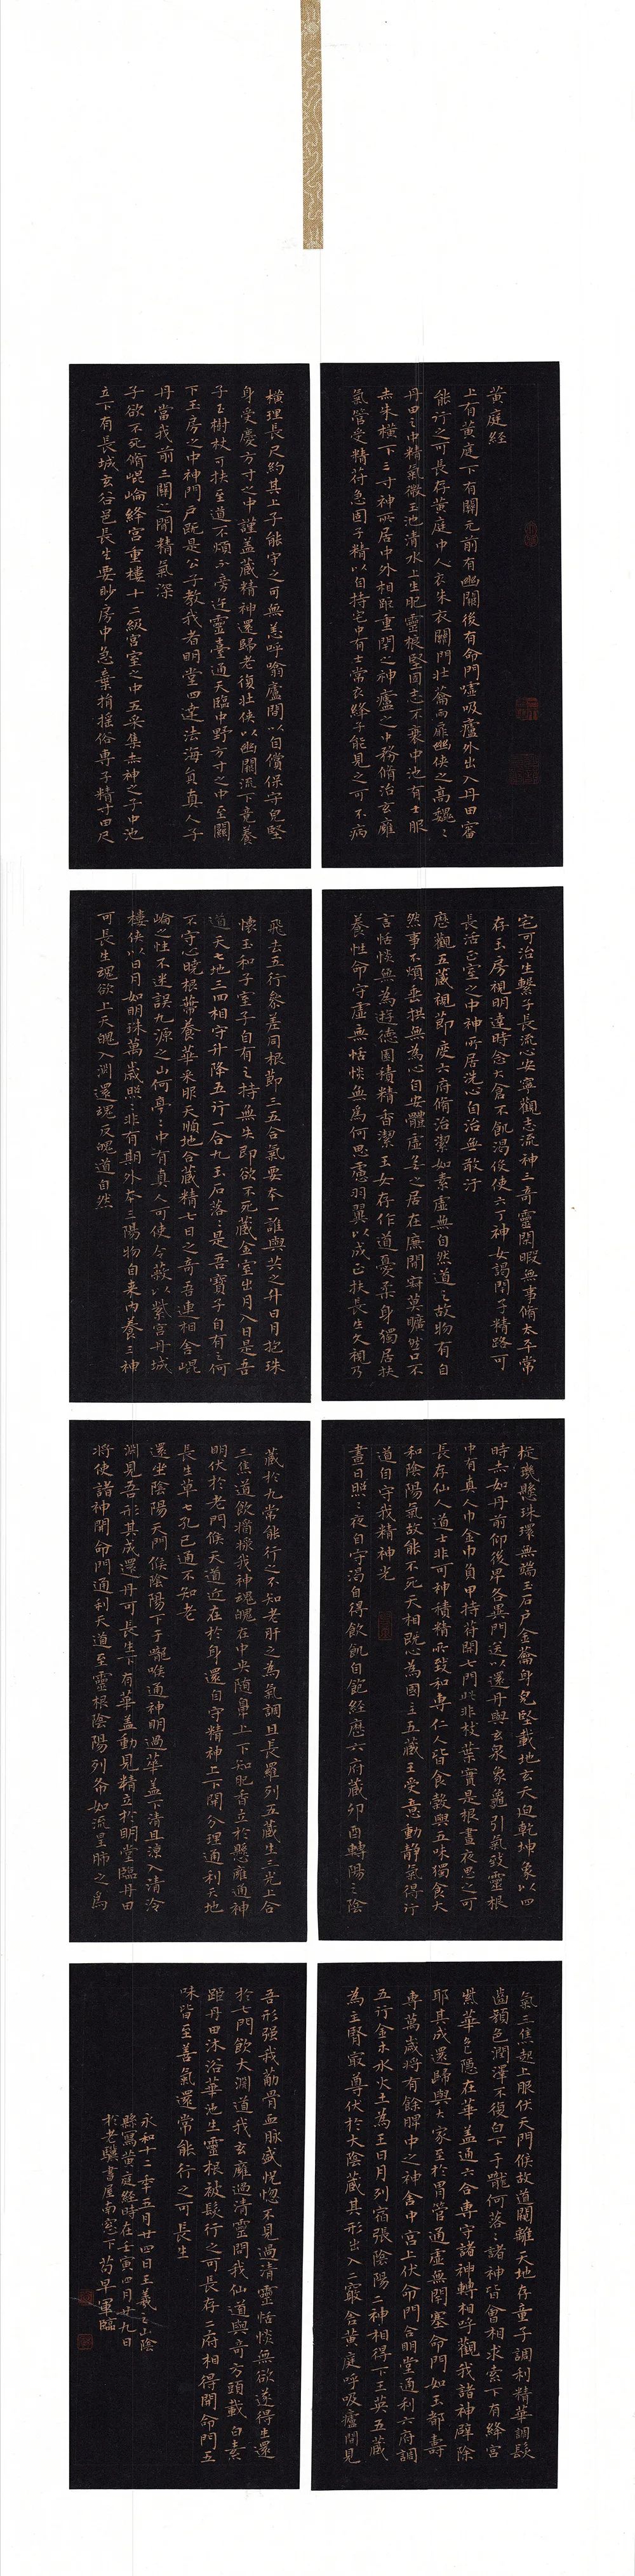 黄庭経
上有黄庭下有關元前有幽關後有命門噓吸廬外出入丹田審
能行之可長存黄庭中人衣朱衣關門壮蘥兩扉幽俠之高巍〻
丹田之中精氣微玉池清水上生肥靈根堅固志不衰中池有士服
赤朱橫下三寸神所居中外相距重閇之神廬之中務脩治玄廱
氣管受精苻急固子精以自持宅中有士常衣絳子能見之可不病
橫理長尺約其上子能守之可無恙呼噏廬間以自償保守皃堅
身受慶方寸之中謹盖藏精神還歸老復壮俠以幽關流下竟養
子玉樹杖可扶至道不煩不旁迕靈臺通天臨中野方寸之中至關
下玉房之中神門户既是公子教我者明堂四達法海員真人子
丹當我前三關之間精氣深
子欲不死脩崐崘絳宫重樓十二級宫室之中五采集赤神之子中池
立下有長城玄谷邑長生要眇房中急棄捐摇俗専子精寸田尺
宅可治生繫子長流心安寧觀志流神三奇靈閑暇無事脩太平常
存玉房視明達時念大倉不飢渴伇使六丁神女謁閇子精路可
長活正室之中神所居洗心自治無敢汙
歷觀五藏視節度六府脩治潔如素虚無自然道之故物有自
然事不煩垂拱無為心自安體虚無之居在廉間寂莫曠然口不
言恬惔無為遊德園積精香潔玉女存作道憂柔身獨居扶
養性命守虚無恬惔無為何思慮羽翼以成正扶長生久視乃
飛去五行叅差同根節三五合氣要本一誰與共之升日月抱珠
懷玉和子室子自有之持無失即欲不死藏金室出月入日是吾
道天七地三四相守升降五行一合九玉石落〻是吾寶子自有之何
不守心曉根蔕養華采服天順地合藏精七日之奇吾連相舍崐
崘之性不迷誤九源之山何亭〻中有真人可使令蔽以紫宫丹城
樓俠以日月如明珠萬歲照〻非有期外本三陽物自来内養三神
可長生魂欲上天魄入渊還魂反魄道自然
琁璣懸珠環無端玉石户金籥身皃堅載地玄天迫乾坤象以四
時赤如丹前仰後卑各異門送以還丹與玄泉象龜引氣致靈根
中有真人巾金巾負甲持苻開七門此非枝葉實是根晝夜思之可
長存仙人道士非可神積精所致和専仁人皆食榖與五味獨食大
和陰陽氣故能不死天相既心為國主五藏王受意動静氣得行
道自守我精神光
晝日照〻夜自守渴自得飲飢自飽経歷六府藏卯酉轉陽之陰
藏於九常能行之不知老肝之為氣調且長羅列五藏生三光上合
三焦道飲醬漿我神魂魄在中央随鼻上下知肥香立於懸廱通神
明伏於老門候天道近在於身還自守精神上下開分理通利天地
長生草七孔已通不知老
還坐陰陽天門候陰陽下于嚨喉通神明過華盖下清且涼入清泠
渊見吾形其成還丹可長生下有華盖動見精立於明堂臨丹田
將使諸神開命門通利天道至靈根陰陽列布如流星肺之為
氣三焦起上服伏天門候故道闚離天地存童子調利精華調髮
齒顏色潤澤不復白下于嚨何落〻諸神皆會相求索下有絳宫
紫華色隱在華盖通六合専守諸神轉相呼觀我諸神辟除
耶其成還歸與大家至於胃管通虚無閇塞命門如玉都壽
専萬歲將有餘脾中之神舍中宫上伏命門合明堂通利六府調
五行金木水火土為王日月列宿張陰陽二神相得下玉英五藏
為主腎最尊伏於大陰藏其形出入二竅舍黄庭呼吸廬間見
吾形强我筋骨血脉盛恍惚不見過清靈恬惔無欲遂得生還
於七門飲大渊道我玄廱過清靈問我仙道與奇方頭載白素
距丹田沐浴華池生靈根被髪行之可長存二府相得開命門五
味皆至善氣還常能行之可長生
永和十二年五月廿四日王羲之山陰
縣寫黄庭経時在壬寅四月廿九日
於老驥書屋南窓下苟早軍臨